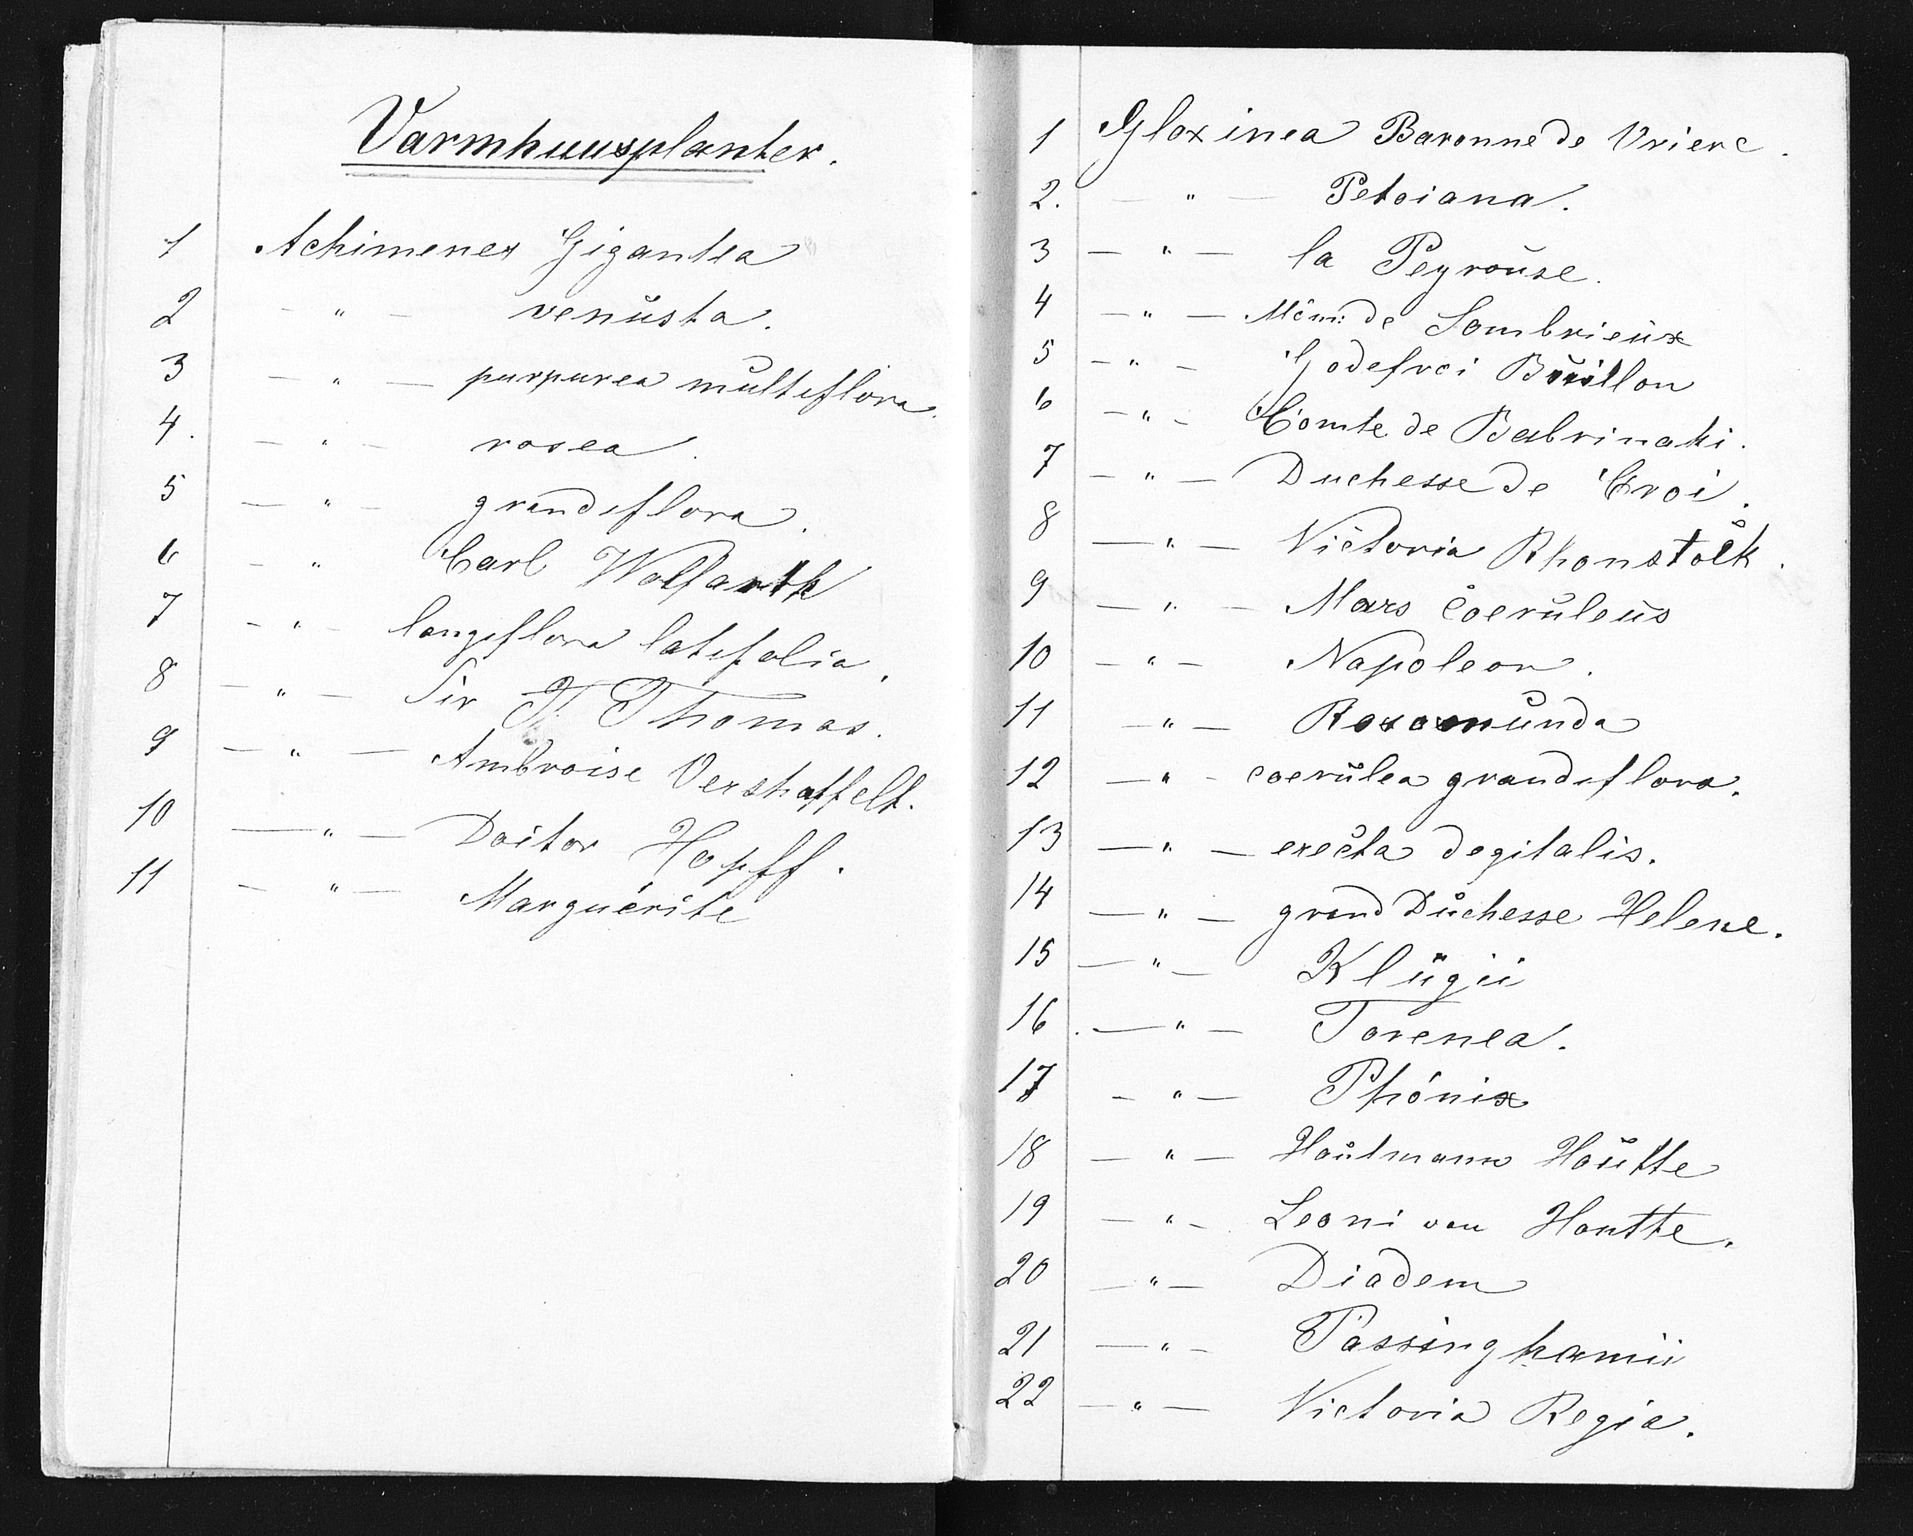 Varmhuusplanter.
1 Achimenes Gigantea
2 - " - venusta.
3 - " - purpurea multiflora.
4. - " - rosea.
5 - " - grandiflora.
6 - " Carl Wolfarth
7 - " - longiflora latifolia.
8 - " - Sir Thomas.
9 - " - Ambroise Vershaffelt.
10 - " - Doctor Hopff.
11 - " - Marguérite
1 Gloxinea Baronne de Vriere.
2. - " - Petoiana.
3 - " - la Peyrouse.
4 - " - de Sombrieux
5 - " - Godefroi Bouillon
6 - " - Comte de Babrinski.
7 - " - Duchesse de Croi.
8 - " - Victoria Rhonstock.
9 - " - Mars Coeruleus
10 - " - Napoleon.
11 - " - Rosamunda
12 - " - coerulea grandiflora.
13 - " - erecta degitalis.
14 - " - grand Duchesse Helene.
15 - " - Klugii
16 - " - Torenea.
17 - " - Phónix
18 - " - Houtmann Houtte
19 - " - Leoni van Houtte.
20 - " - Diadem
21 - " - Passinghamii
22 - " - Victoria Regia.